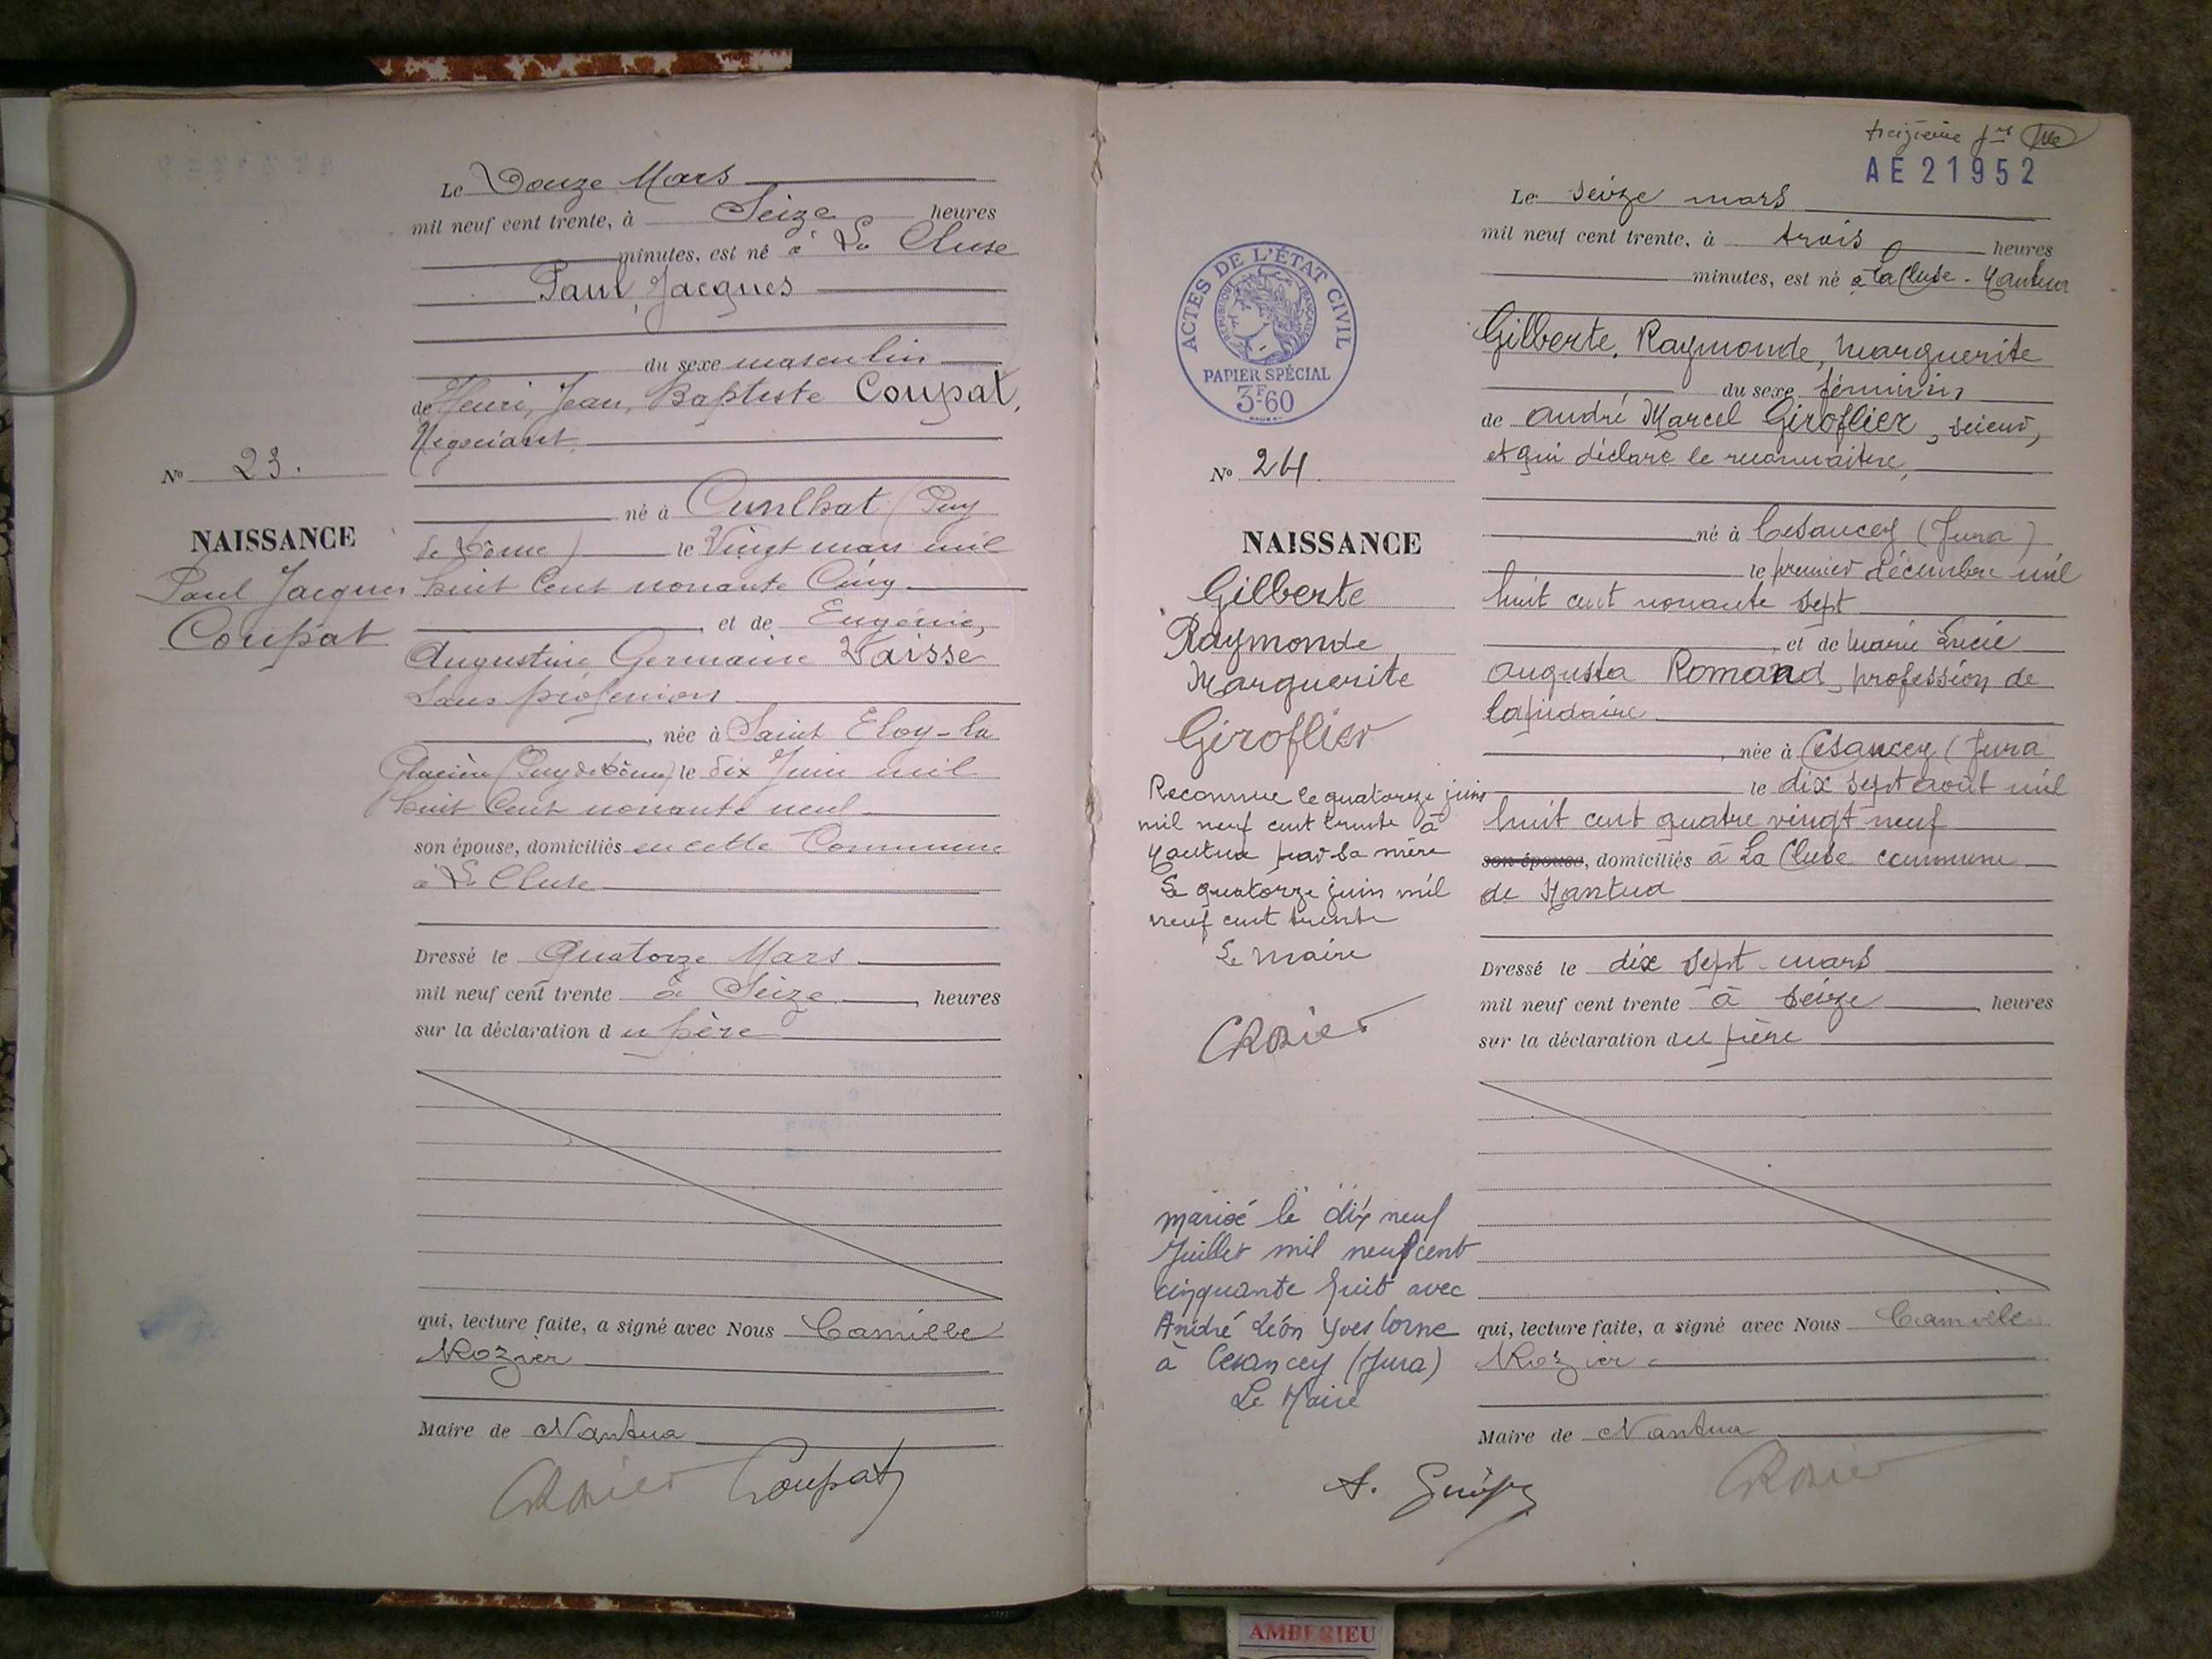 Le Douze Mars
mil neuf cent trente, à Seize heures
minutes, est né à La Cluse
Paul, Jacques
du sexe masculin
de Henri, Jean, Baptiste Coupat,
Négociant,
né à Cunlhat (Puy
de Dôme) le Vingt mars mil
huit Cent nonante Cinq
et de Eugénie,
Augustine Germaine Vaisse
Sans profession
, née à Saint Eloy-la
Glacière (Puy de Dôme) le dix Juin mil
huit Cent nonante neuf
son épouse, domiciliés en cette Commune
à La Cluse
Dressé le Quatorze Mars
mil neuf cent trente à Seize, heures
sur la déclaration du père
qui, lecture faite, a signé avec Nous Camille
Rozier
Maire de Nantua
CRozier Coupat
No 23.
NAISSANCE
Paul Jacques
Coupat
treizième
AE21952
Le seize mars
mil neuf cent trente, à trois heures
minutes, est né à la Cluse. Nantua
Gilberte, Raymonde, Marguerite
du sexe féminin
de André Marcel Giroflier, scieur,
et qui déclare le reconnaitre,
né à Cesancey (Jura)
le premier décembre mil
huit cent nonante sept
, et de Marie Lucie
Augusta Romand, profession de
lapidaire
, née à Cesancey (Jura
le dix sept août mil
huit cent quatre vingt neuf
son épouse, domiciliés à La Cluse commune
de Nantua
Dressé le dix sept mars
mil neuf cent trente à seize, heures
sur la déclaration du père
qui, lecture faite, a signé avec Nous Camille
Rozier
Maire de Nantua
CRozier
ACTES DE L'ÉTAT CIVIL
RÉPUBLIQUE FRANÇAISE
PAPIER SPÉCIAL
3F60
No 24
NAISSANCE
Gilberte
Raymonde
Marguerite
Giroflier
Reconnue le quatorze juin
mil neuf cent trente à
Nantua par sa mère
Le quatorze juin mil
neuf cent trente
Le Maire
CRozier
mariée le dix neuf
Juillet mil neuf cent
cinquante huit avec
André Léon Yves Corne
à Cesancey (Jura)
Le Maire
AMBERIEU